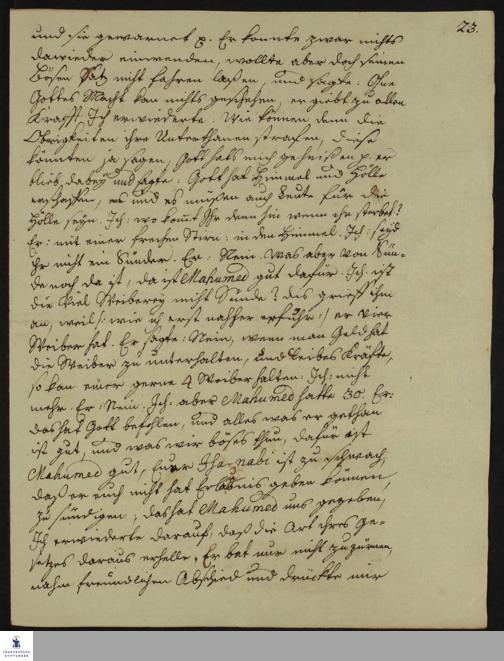 23.
und sie gewarnet p. Er konnte zwar nichts
dawieder einwenden, wollte aber doch seinen
bösen Satz nicht fahren laßen, und sagte: Ohne
Gottes Macht kan nichts geschehen, er giebt zu allem
Krafft. Ich erwiederte: Wie können denn die
Obrigkeiten ihre Unterthanen straffen, diese
könnten ja sagen, Gott hats mich geheißen p. er
blieb dabey und sagte: Gott hat Himmel und Hölle
erschaffen, und es müßen auch Leute für die
Hölle seyn. Ich: wo komt Ihr denn hin wenn ihr sterbet?
Er: mit einer frechen Stirn: in den Himmel. Ich: seyd
Ihr nicht ein Sünder. Er: Nein. Was aber von Sün-
de noch da ist, da ist Mahumed gut dafür. Ich: ist
die viel Weiberey nicht Sünde? dis grieff ihn
an, weil /: wie ich erst nachher erfuhr :/ er vier
Weiber hat. Er sagte: Nein, wenn man Geld hat
die Weiber zu unterhalten, und Leibes Kräfte,
so kan einer gerne 4 Weiber halten. Ich: nicht
mehr. Er: Nein. Ich: aber Mahumed hatte 30. Er:
das hat Gott befohlen, und alles was er gethan
ist gut, und was wir böses thun, dafür ist
Mahumed gut, Eurer Isanabi ist zu schwach,
daß er euch nicht hat Erlaubnis geben können,
zu sündigen; das hat Mahumed uns gegeben,
Ich erwiederte darauf, daß die Art ihres Ge-
setzes daraus erhelle. Er bat nur nicht zu zürnen,
nahm freundlichen Abschied und drückte mir
FRANCKESCHE
STIFTUNGEN